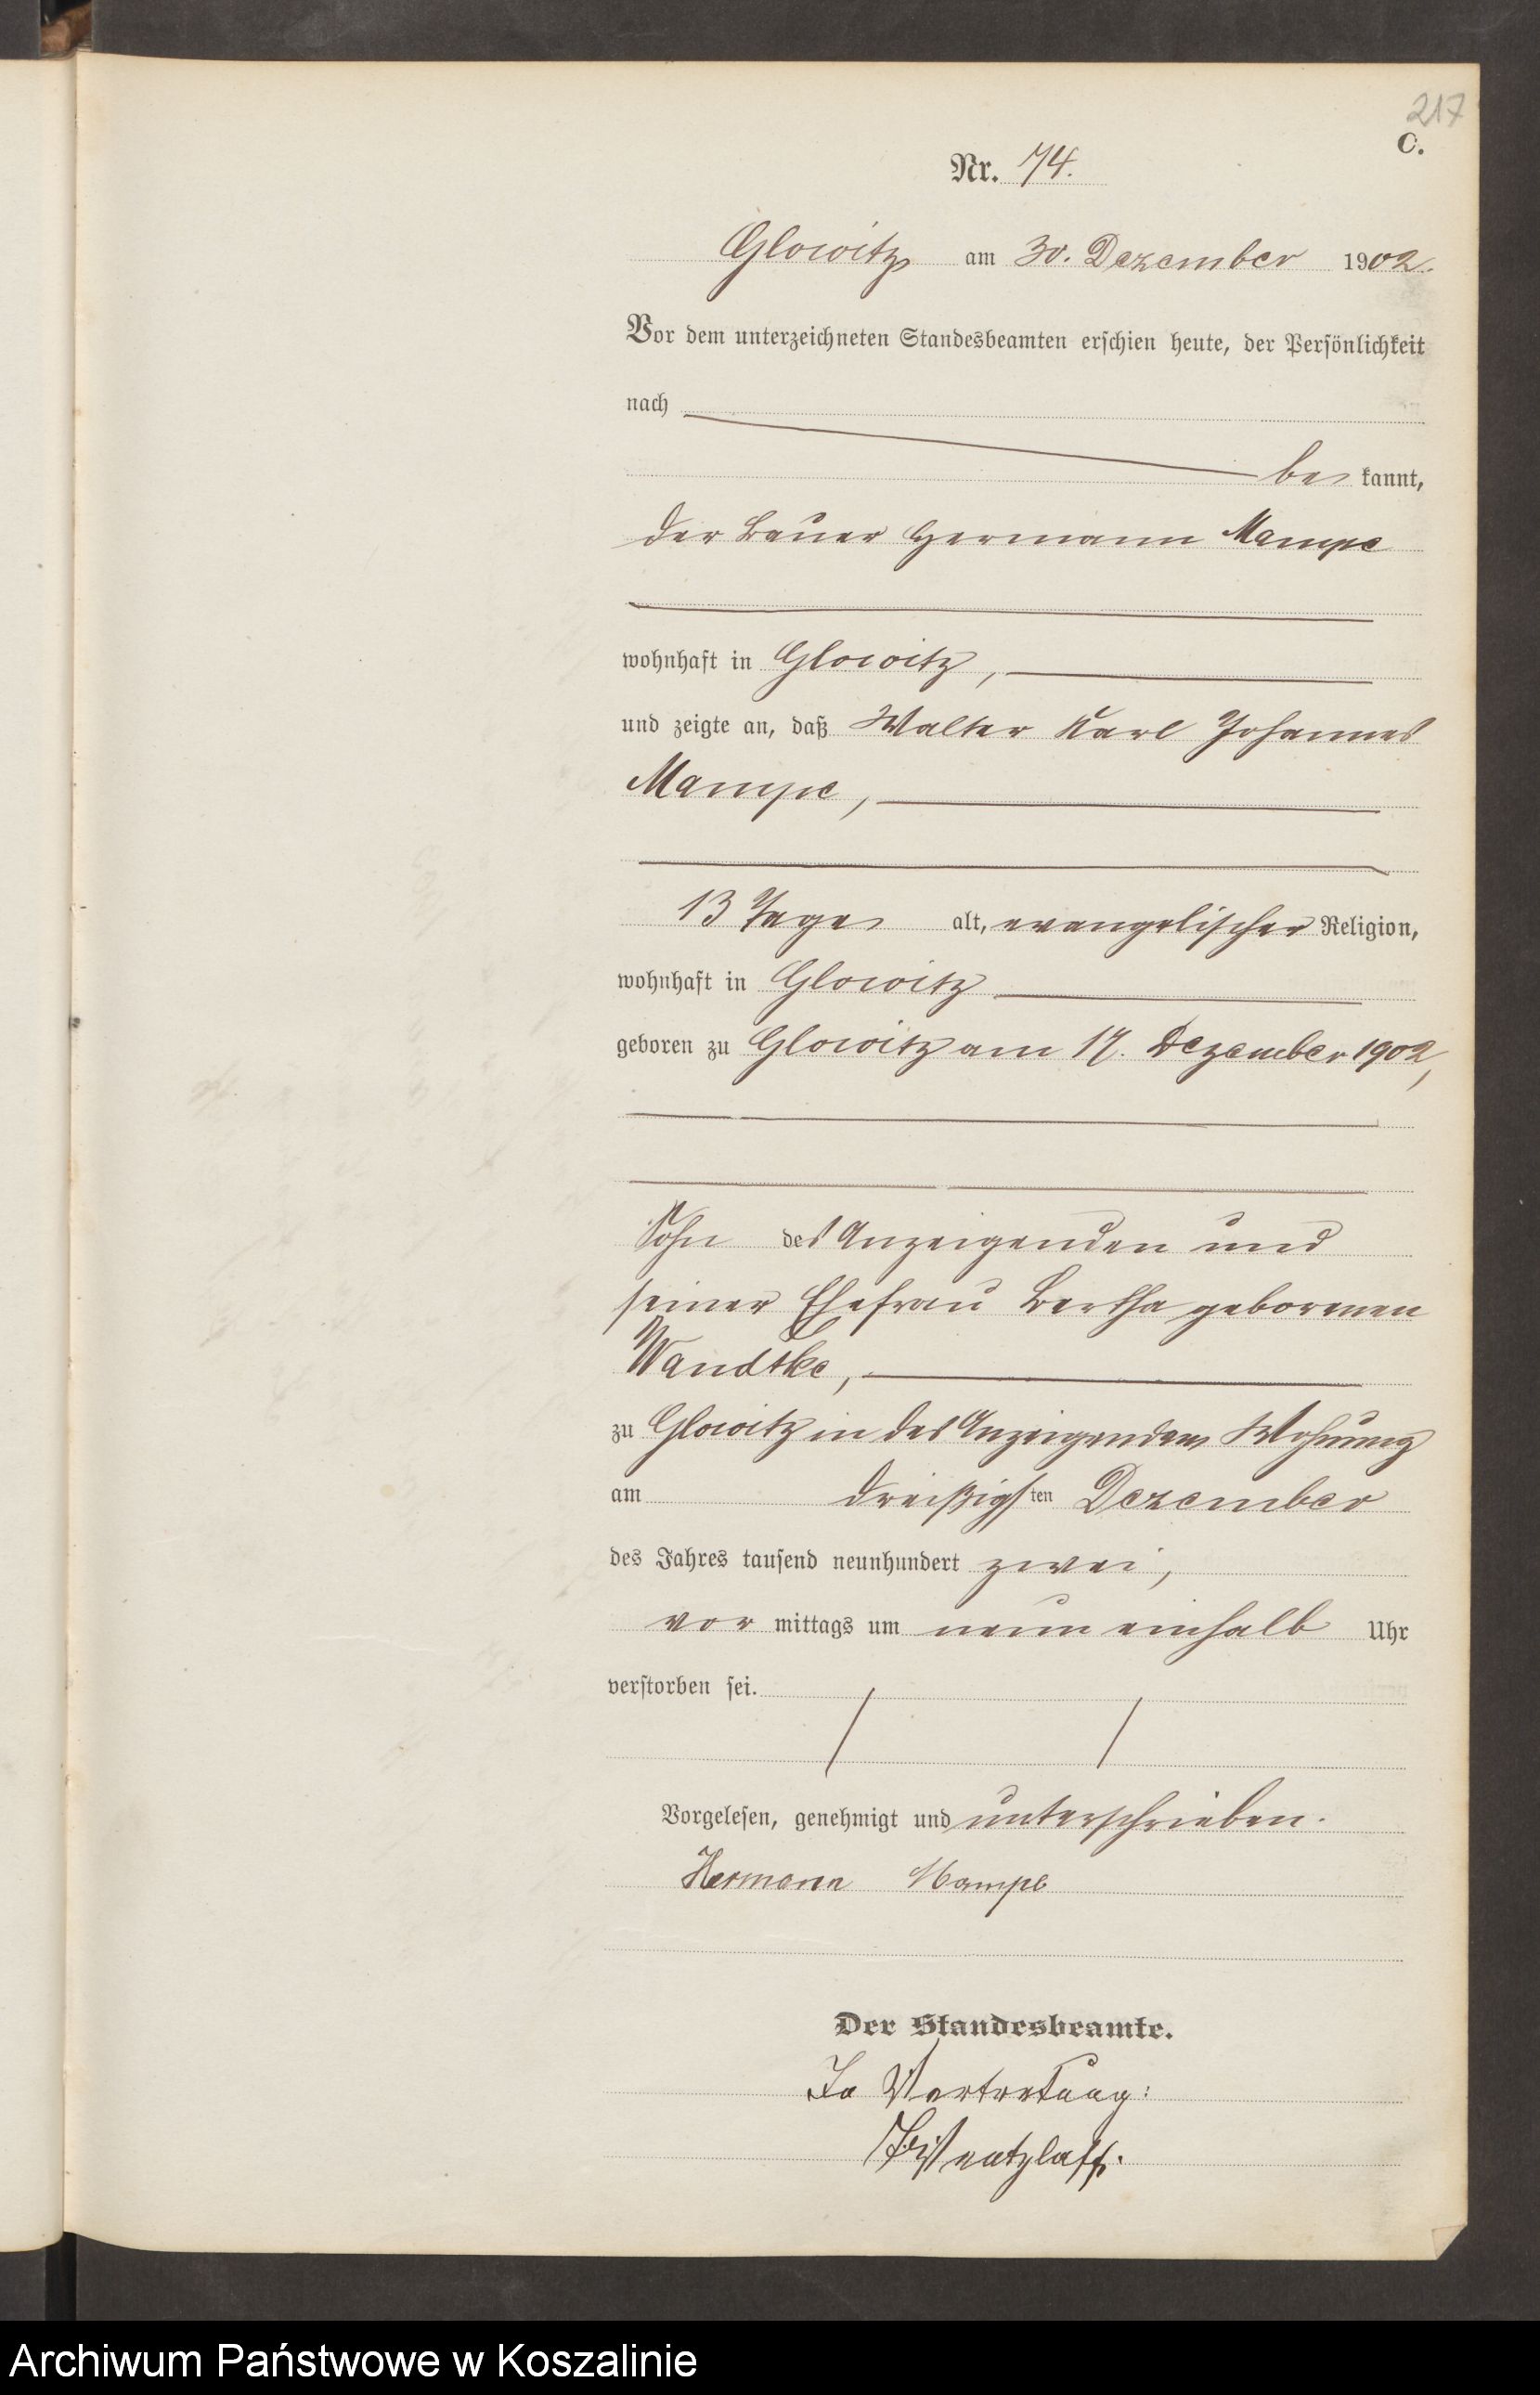 217
C.
Nr. 74.
Glowitz am 30. Dezember 1902.
Vor dem unterzeichneten Standesbeamten erschien heute, der Persönlichkeit
nach
be kannt,
der Bauer Hermann Mampe
wohnhaft in Glowitz,
und zeigte an, daß Walter Karl Johannes
Mampe,
13 Tage alt, evangelischer Religion,
wohnhaft in Glowitz
geboren zu Glowitz am 17. Dezember 1902,
Sohn des Anzeigenden und
seiner Ehefrau Bertha geborenen
Wandtke,
zu Glowitz in des Anzeigenden Wohnung
am dreißigsten Dezember
des Jahres tausend neunhundert zwei,
vor mittags um neun einhalb Uhr
verstorben sei.
Vorgelesen, genehmigt und unterschrieben.
Hermann Mampe
Der Standesbeamte.
In Vertretung:
Archiwum Państwowe w Koszalinie